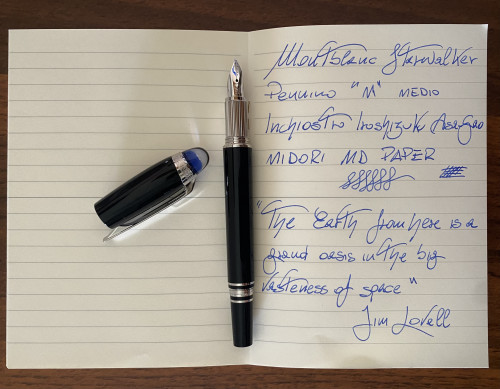 Montblanc Starwalker
Pennino "M" MEDIO
Inchiostro Iroshizuku Asagao
MIDORI MD PAPER
"The Earth from here is a
grand oasis in the big
vasteness of space"
Jim Lovell